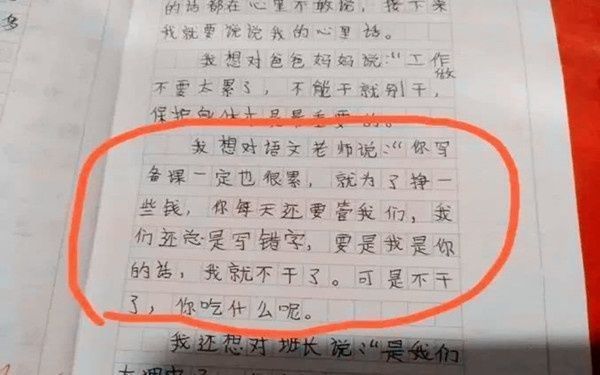 的话都在心里不敢说，接下来
我就要说说我的心里话。
我想对爸爸妈妈说："工作做
不要太累了，不能干就别干，
保护身体才是最重要的。
我想对语文老师说："你写
备课一定也很累，就为了挣一
些钱，你每天还要管我们，我
们还总是写错字，要是我是你
的话，我就不干了。可是不干
了，你吃什么呢。
我还想对班长说："是我们